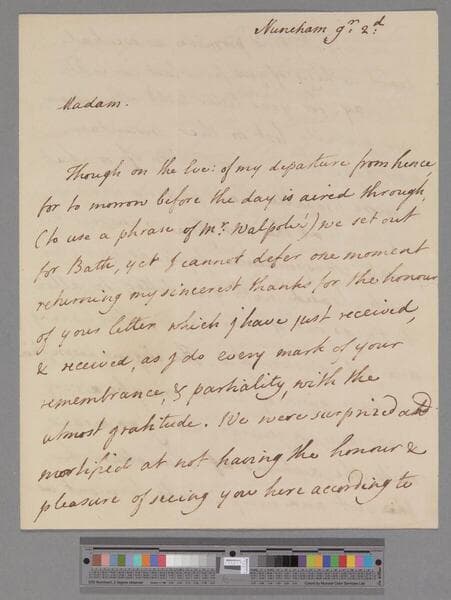 Nuneham 9.r 2.d
Madam.
Though on the Eve: of my departure from hence
for to morrow before the day is aired through,
(to use a phrase of Mr. Walpole's) we set out
for Bath, yet I cannot defer one moment
returning my sincerest thanks for the honour
of your letter which I have just received,
& received, as I do every mark of your
remembrance, & partiality, with the
utmost gratitude. We were surprized and
mortified at not having the honour &
pleasure of seeing you here according to